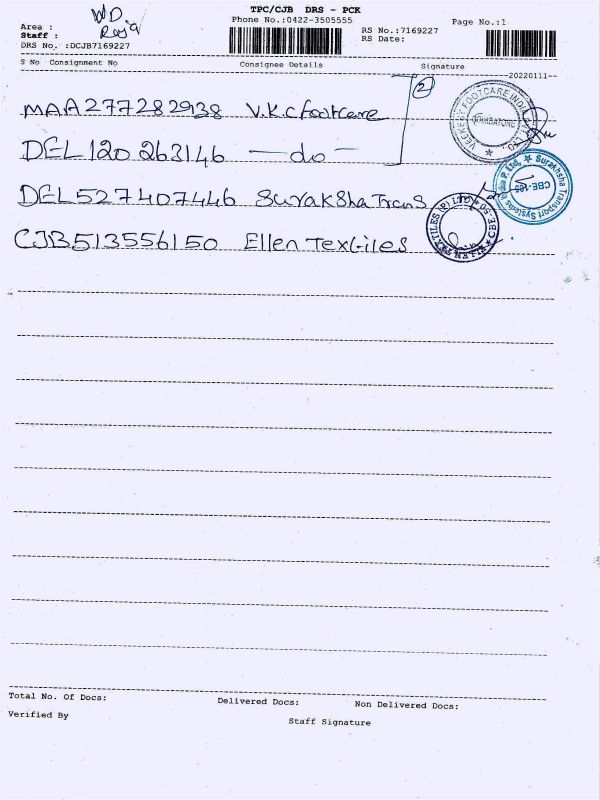 TPC/CJB DRS - PCK
Area : WD
Phone No.:0422-3505555
Page No.:1
Staff : Raja
RS No.:7169227
DRS No. :DCJB7169227
RS Date:
S No Consignment No Consignee Details Signature
--20220111--
MAA277282938 V.K.C footcare
2
DEL120263146 —do—
DEL527407446 Suraksha Trans
CJB513556150 Ellen Textiles
VEEKESY FOOTCARE INDIA
LTD.
Suraksha Transport Systems P. Ltd.
ELLEN TEXTILES (P) LTD.
Total No. Of Docs: Delivered Docs: Non Delivered Docs:
Verified By
Staff Signature